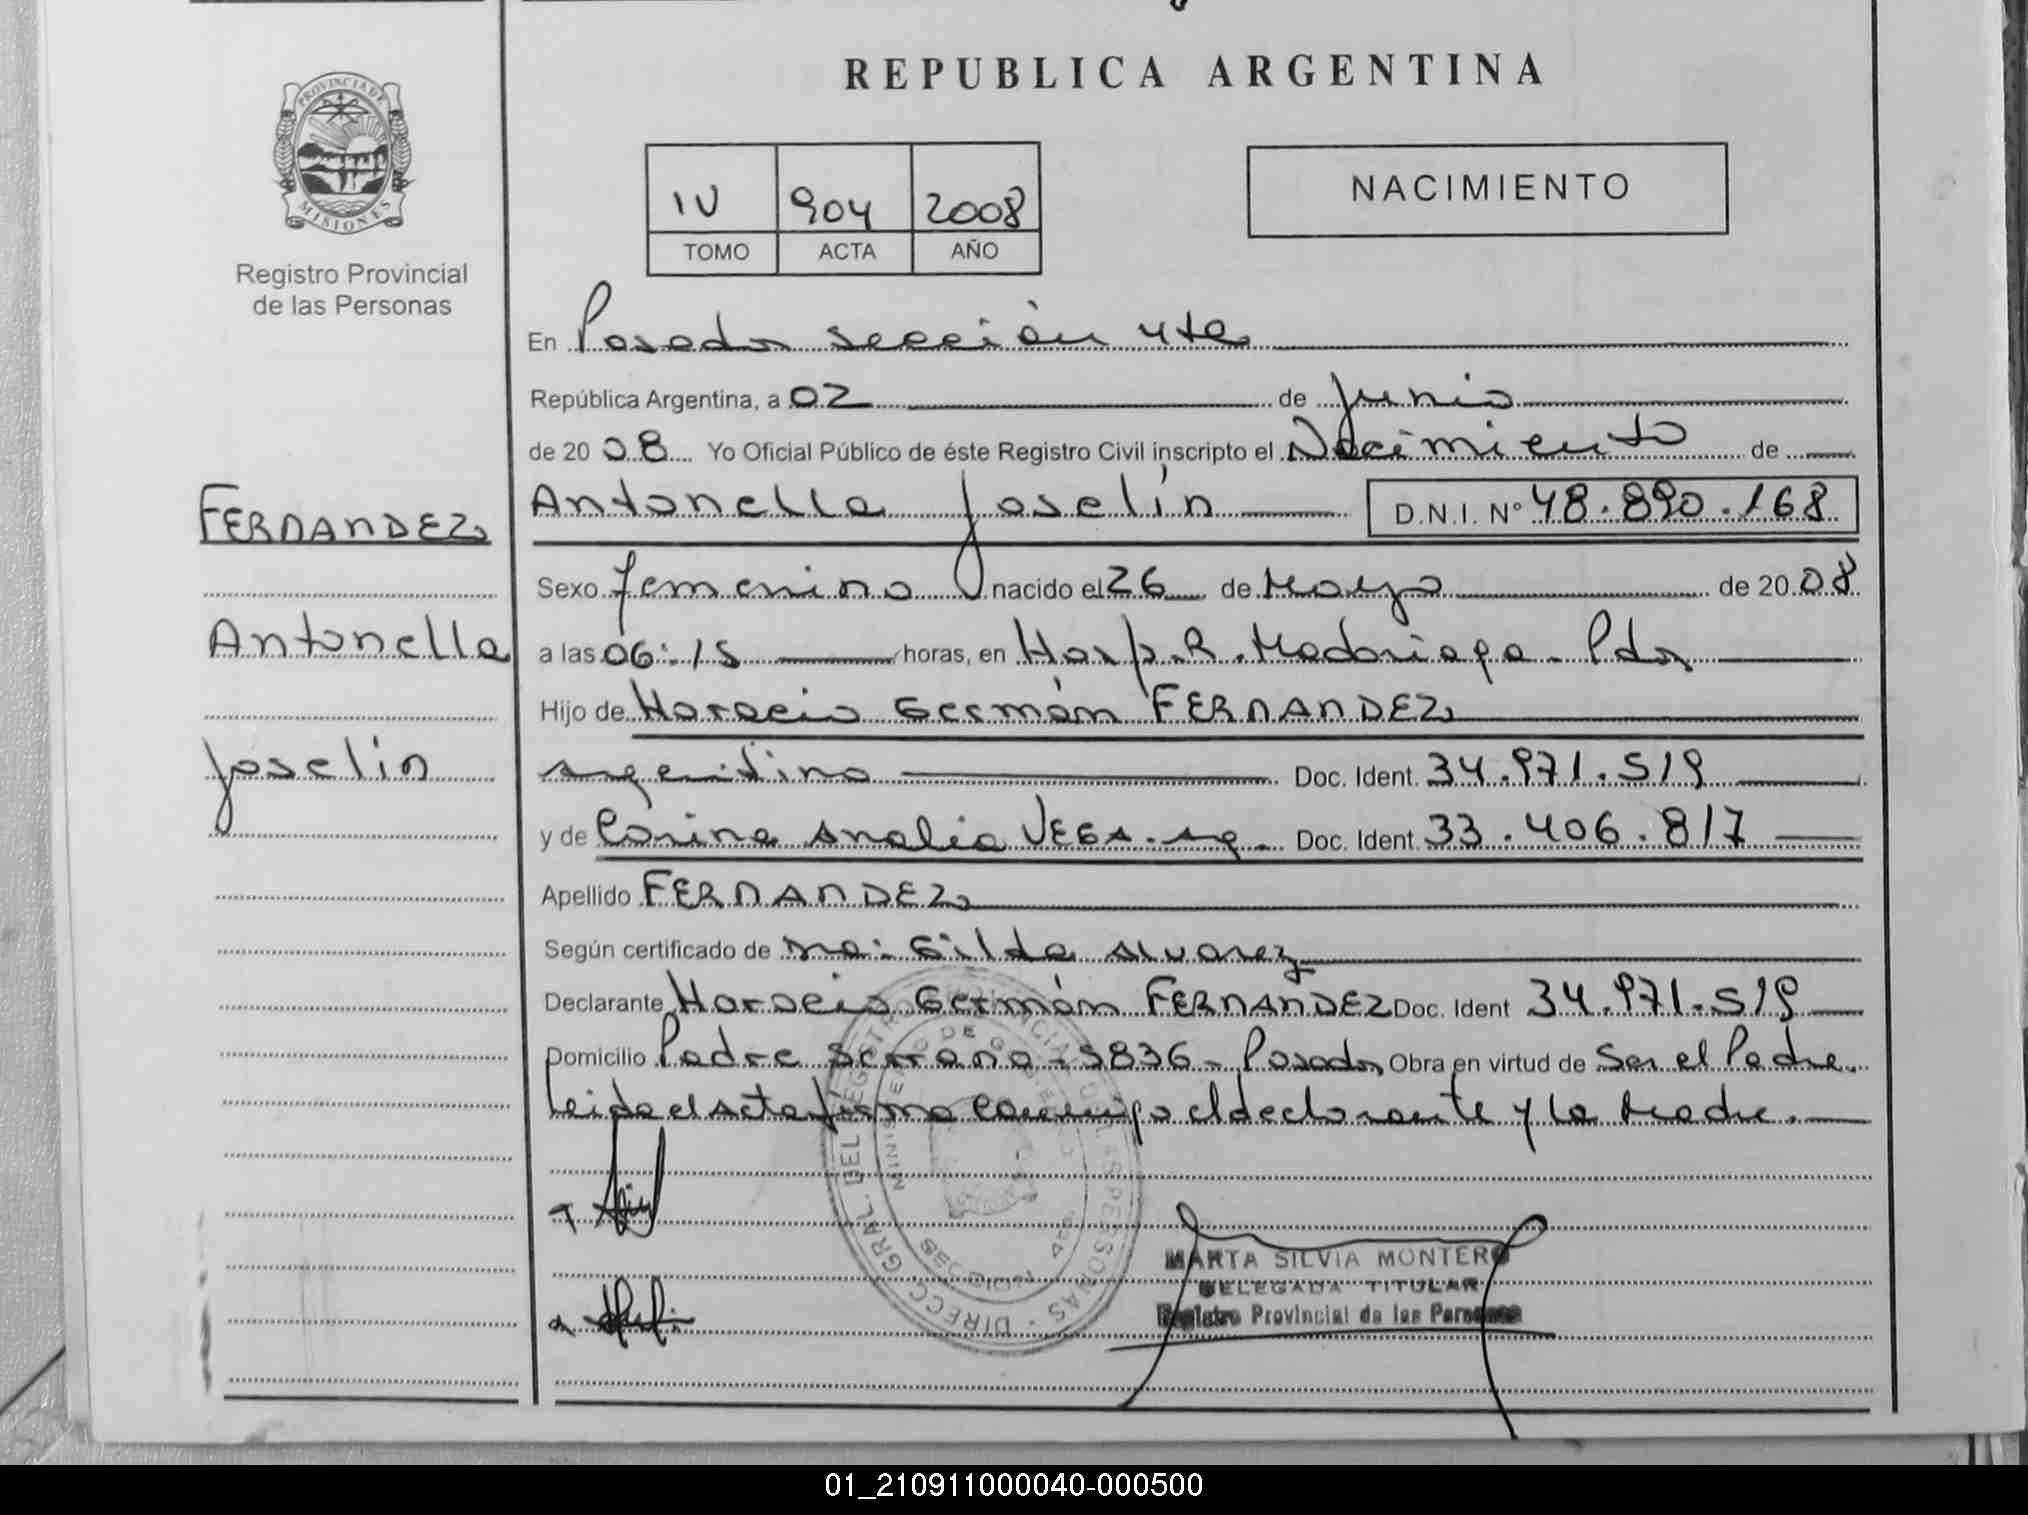 REPUBLICA ARGENTINA
PROVINCIA DE
MISIONES
Registro Provincial
de las Personas
IV 904 2008
TOMO ACTA AÑO
NACIMIENTO
FERNANDEZ
Antonella
Joselin
En Posadas sección 4ta
República Argentina, a 02 de Junio
de 2008 Yo Oficial Público de éste Registro Civil inscripto el Nacimiento de
Antonella Joselín D.N.I. Nº 48.890.168
Sexo femenino nacido el 26 de Mayo de 2008
a las 06:15 horas, en Hosp. R. Madariaga - Pdas
Hijo de Horacio Germán FERNANDEZ
argentino Doc. Ident. 34.971.519
y de Corina Analia VEGA - Doc. Ident. 33.406.817
Apellido FERNANDEZ
Según certificado de Gilda Alvarez
Declarante Horacio Germán FERNANDEZ Doc. Ident 34.971.519
Domicilio Padre Serrano - 5836 - Posadas Obra en virtud de Ser el Padre.
Leida el Acta firma conmigo el declarante y la Madre.
DIRECC. GRAL. DEL REGISTRO PROVINCIAL DE LAS PERSONAS
MINISTERIO DE GOBIERNO
MARTA SILVIA MONTERO
DELEGADA TITULAR
Registro Provincial de las Personas
01_210911000040-000500